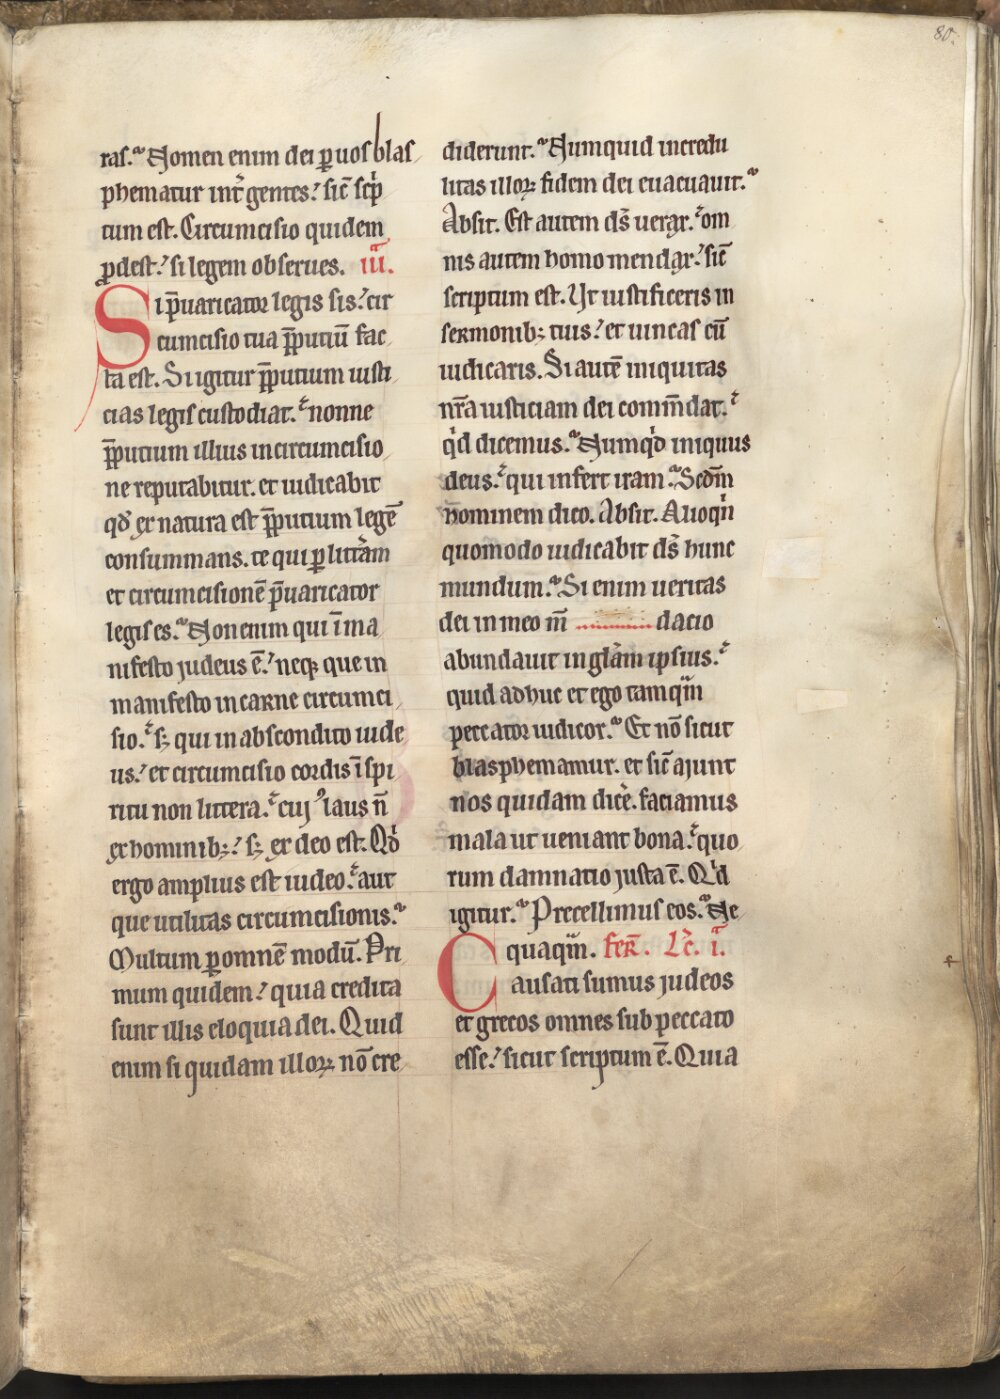 80.
ras. Nomen enim dei ꝑ uos blas
phematur int̄ gentes. sic̄ scp̄
tum est. Circumcisio quidem
ꝓdest. si legem obserues. iii.
Si p̄uaricator legis sis. cir
cumcisio tua p̄putiū fac
ta est. Si igitur p̄putium iusti
cias legis custodiat. nonne
p̄putium illius in circumcisio
ne reputabitur. et iudicabit
qđ ex natura est p̄putium legē
consummans. te qui ꝑ litt̄am
et circumcisionē p̄uaricator
legis es. Non enim qui ī ma
nifesto judeus ē. neqꝫ que in
manifesto in carne circumci
sio. sꝫ qui in abscondito iude
us. et circumcisio cordis ī spi
ritu non littera. cujꝰ laus n̄
ex hominibꝫ. sꝫ ex deo est. Qđ
ergo amplius est iudeo. aut
que utilitas circumcisionis.
Multum ꝑ omnē modū. Pri
mum quidem. quia credita
sunt illis eloquia dei. Quid
enim si quidam illoꝝ nō cre
diderunt. Numquid incredu
litas illoꝝ fidem dei euacuauit.
Absit. Est autem ds̄ uerax. om
nis autem homo mendax. sic̄
scriptum est. Ut iustificeris in
sermonibꝫ tuis. et uincas cū
iudicaris. Si autē iniquitas
nr̄a iusticiam dei commdat̄.
qd dicemus. Numqđ iniquus
deus. qui infert iram. Scdm̄
hominem dico. Absit. Alioqn̄
quomodo iudicabit ds̄ hunc
mundum. Si enim ueritas
dei in meo m̄ dacio
abundauit in glām ipsius.
quid adhuc et ego tamqm̄
peccator iudicor. Et nō sicut
blasphemamur. et sic̄ ajunt
nos quidam dicē. faciamus
mala ut ueniant bona. quo
rum damnatio justa ē. Qid
igitur. Precellimus eos. Ne
quaqm̄. fer̄. Lc̄. i.
Causati sumus judeos
et grecos omnes sub peccato
esse. sicut scriptum ē. Quia